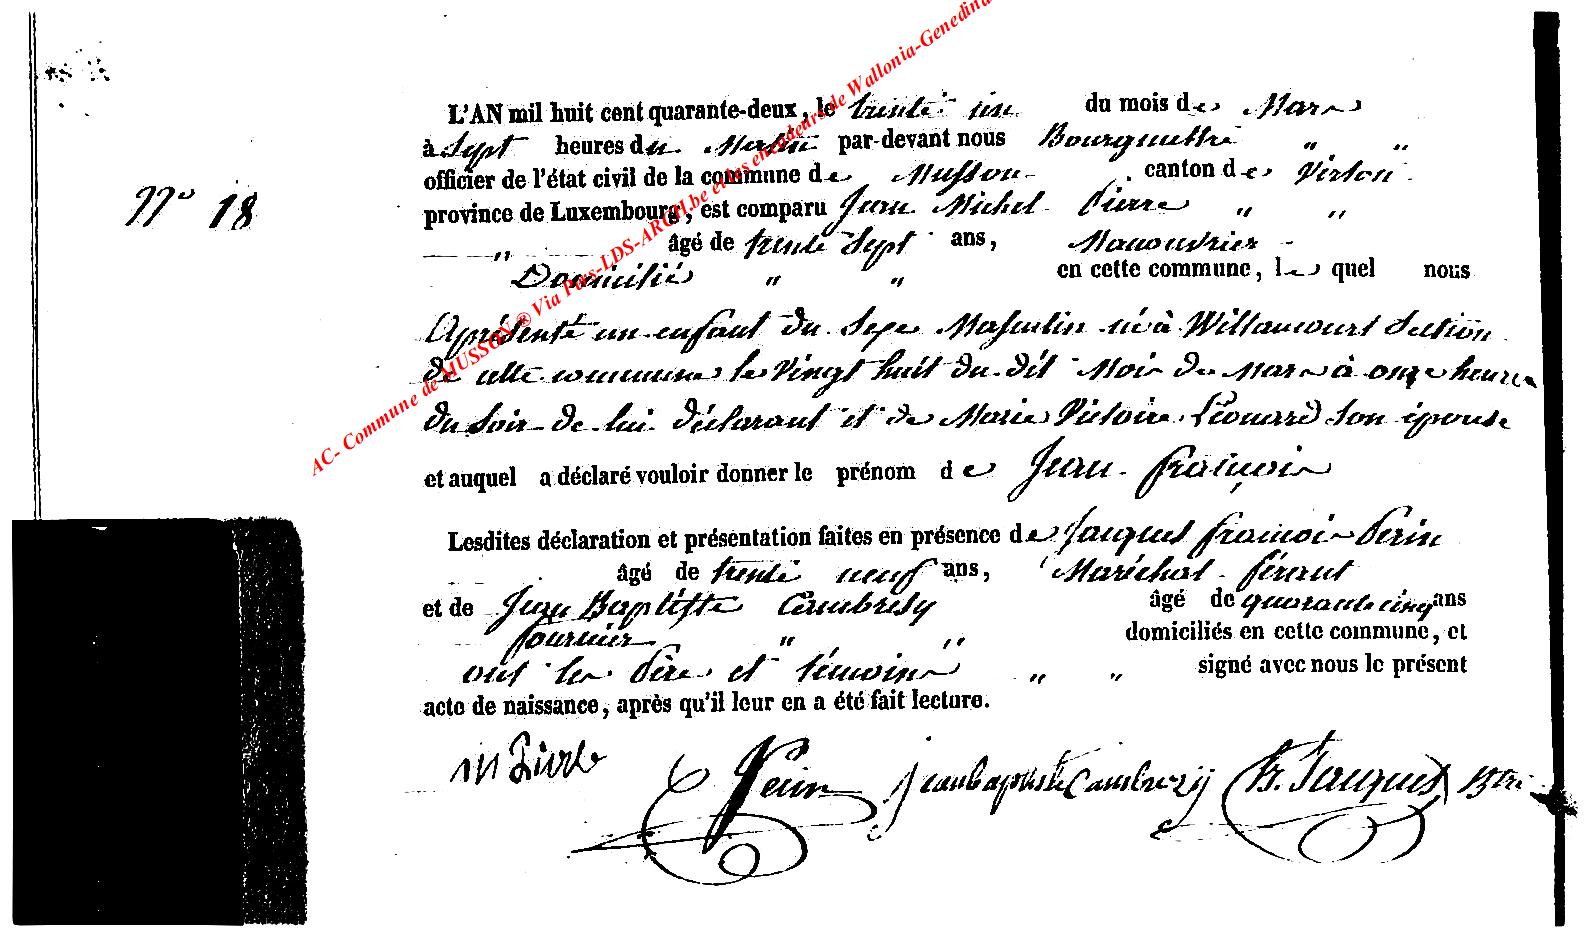 AC- Commune de MUSSON ® Via Pers-LDS-ARCH.be et les encodeurs de Wallonia-Genedina
L'AN mil huit cent quarante-deux, le trente un du mois de Mars
à Sept heures du Matin par-devant nous Bourguemestre " "
officier de l'état civil de la commune de Musson canton de Virton
province de Luxembourg, est comparu Jean Michel Pierre " "
N° 18
" âgé de trente Sept ans, Manouvrier
Domicilié " " en cette commune, le quel nous
Aprésenté un enfant du Sexe Masculin né à Willancourt Section
de cette commune le Vingt huit du dit Mois de Mars à onze heures
du Soir de lui déclarant et de Marie Victoire Léonard son épouse
et auquel a déclaré vouloir donner le prénom de Jean François
Lesdites déclaration et présentation faites en présence de Jacques François Perin
âgé de trente neuf ans, Maréchal férant
et de Jean Baptiste Cambresy âgé de quarante cinq ans
fournier " " domiciliés en cette commune, et
ont les Père et témoins " " signé avec nous le présent
acte de naissance, après qu'il leur en a été fait lecture.
m Pierre Perin jean baptiste Cambrezÿ Jauquet